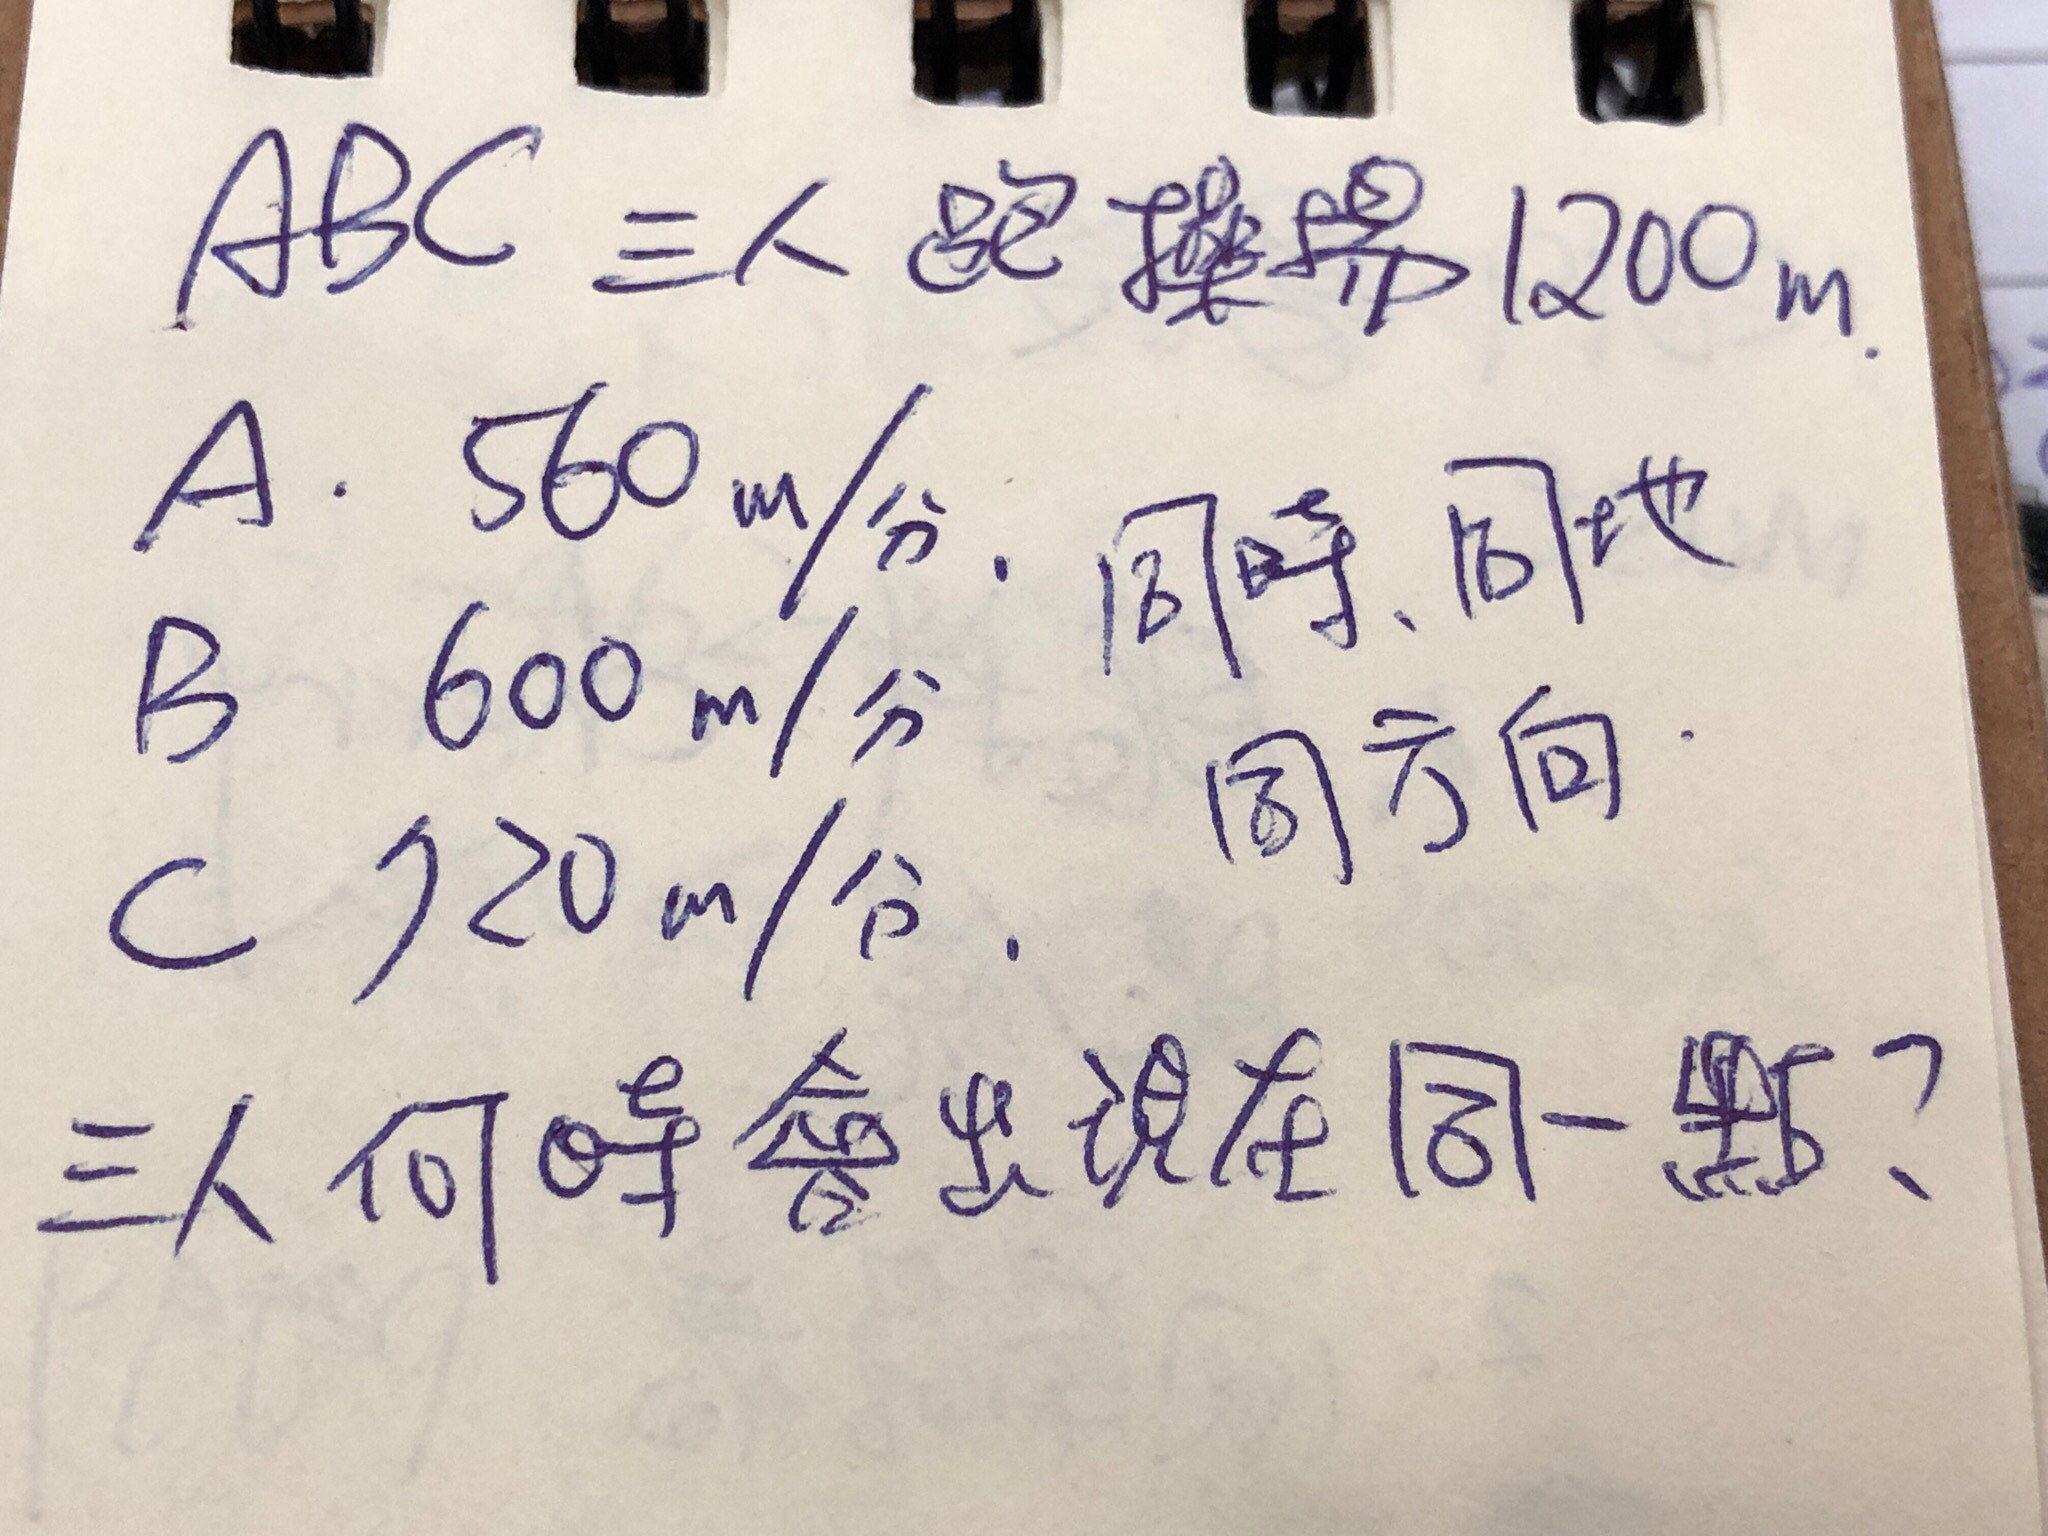 ABC 三人跑操場1200m.
A. 560m/分. 同時、同地
B 600m/分 同方向.
C 720m/分.
三人何時會出現在同一點?